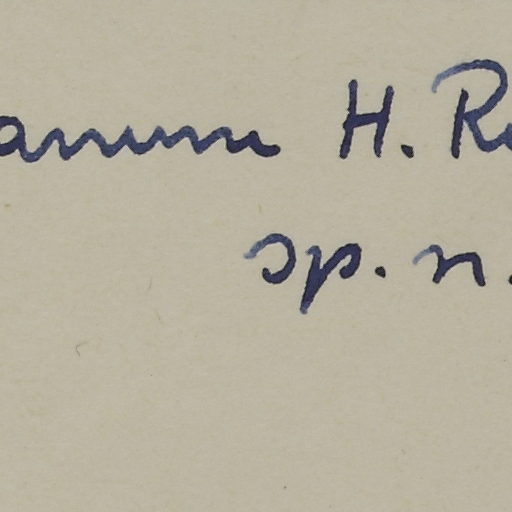 anum H. R
sp. n.